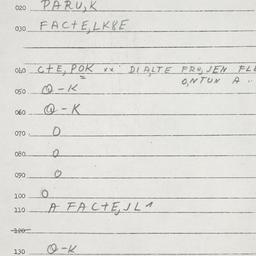 020 PARU,K
030 FACTE,LK8E
040 CTE,POK DIALTE FRO,JEN FLE
O,NTUN A
050 O-K
060 O-K
070 O
080 O
090 O
100 O
110 A FACTE,JL1
120
130 O-K